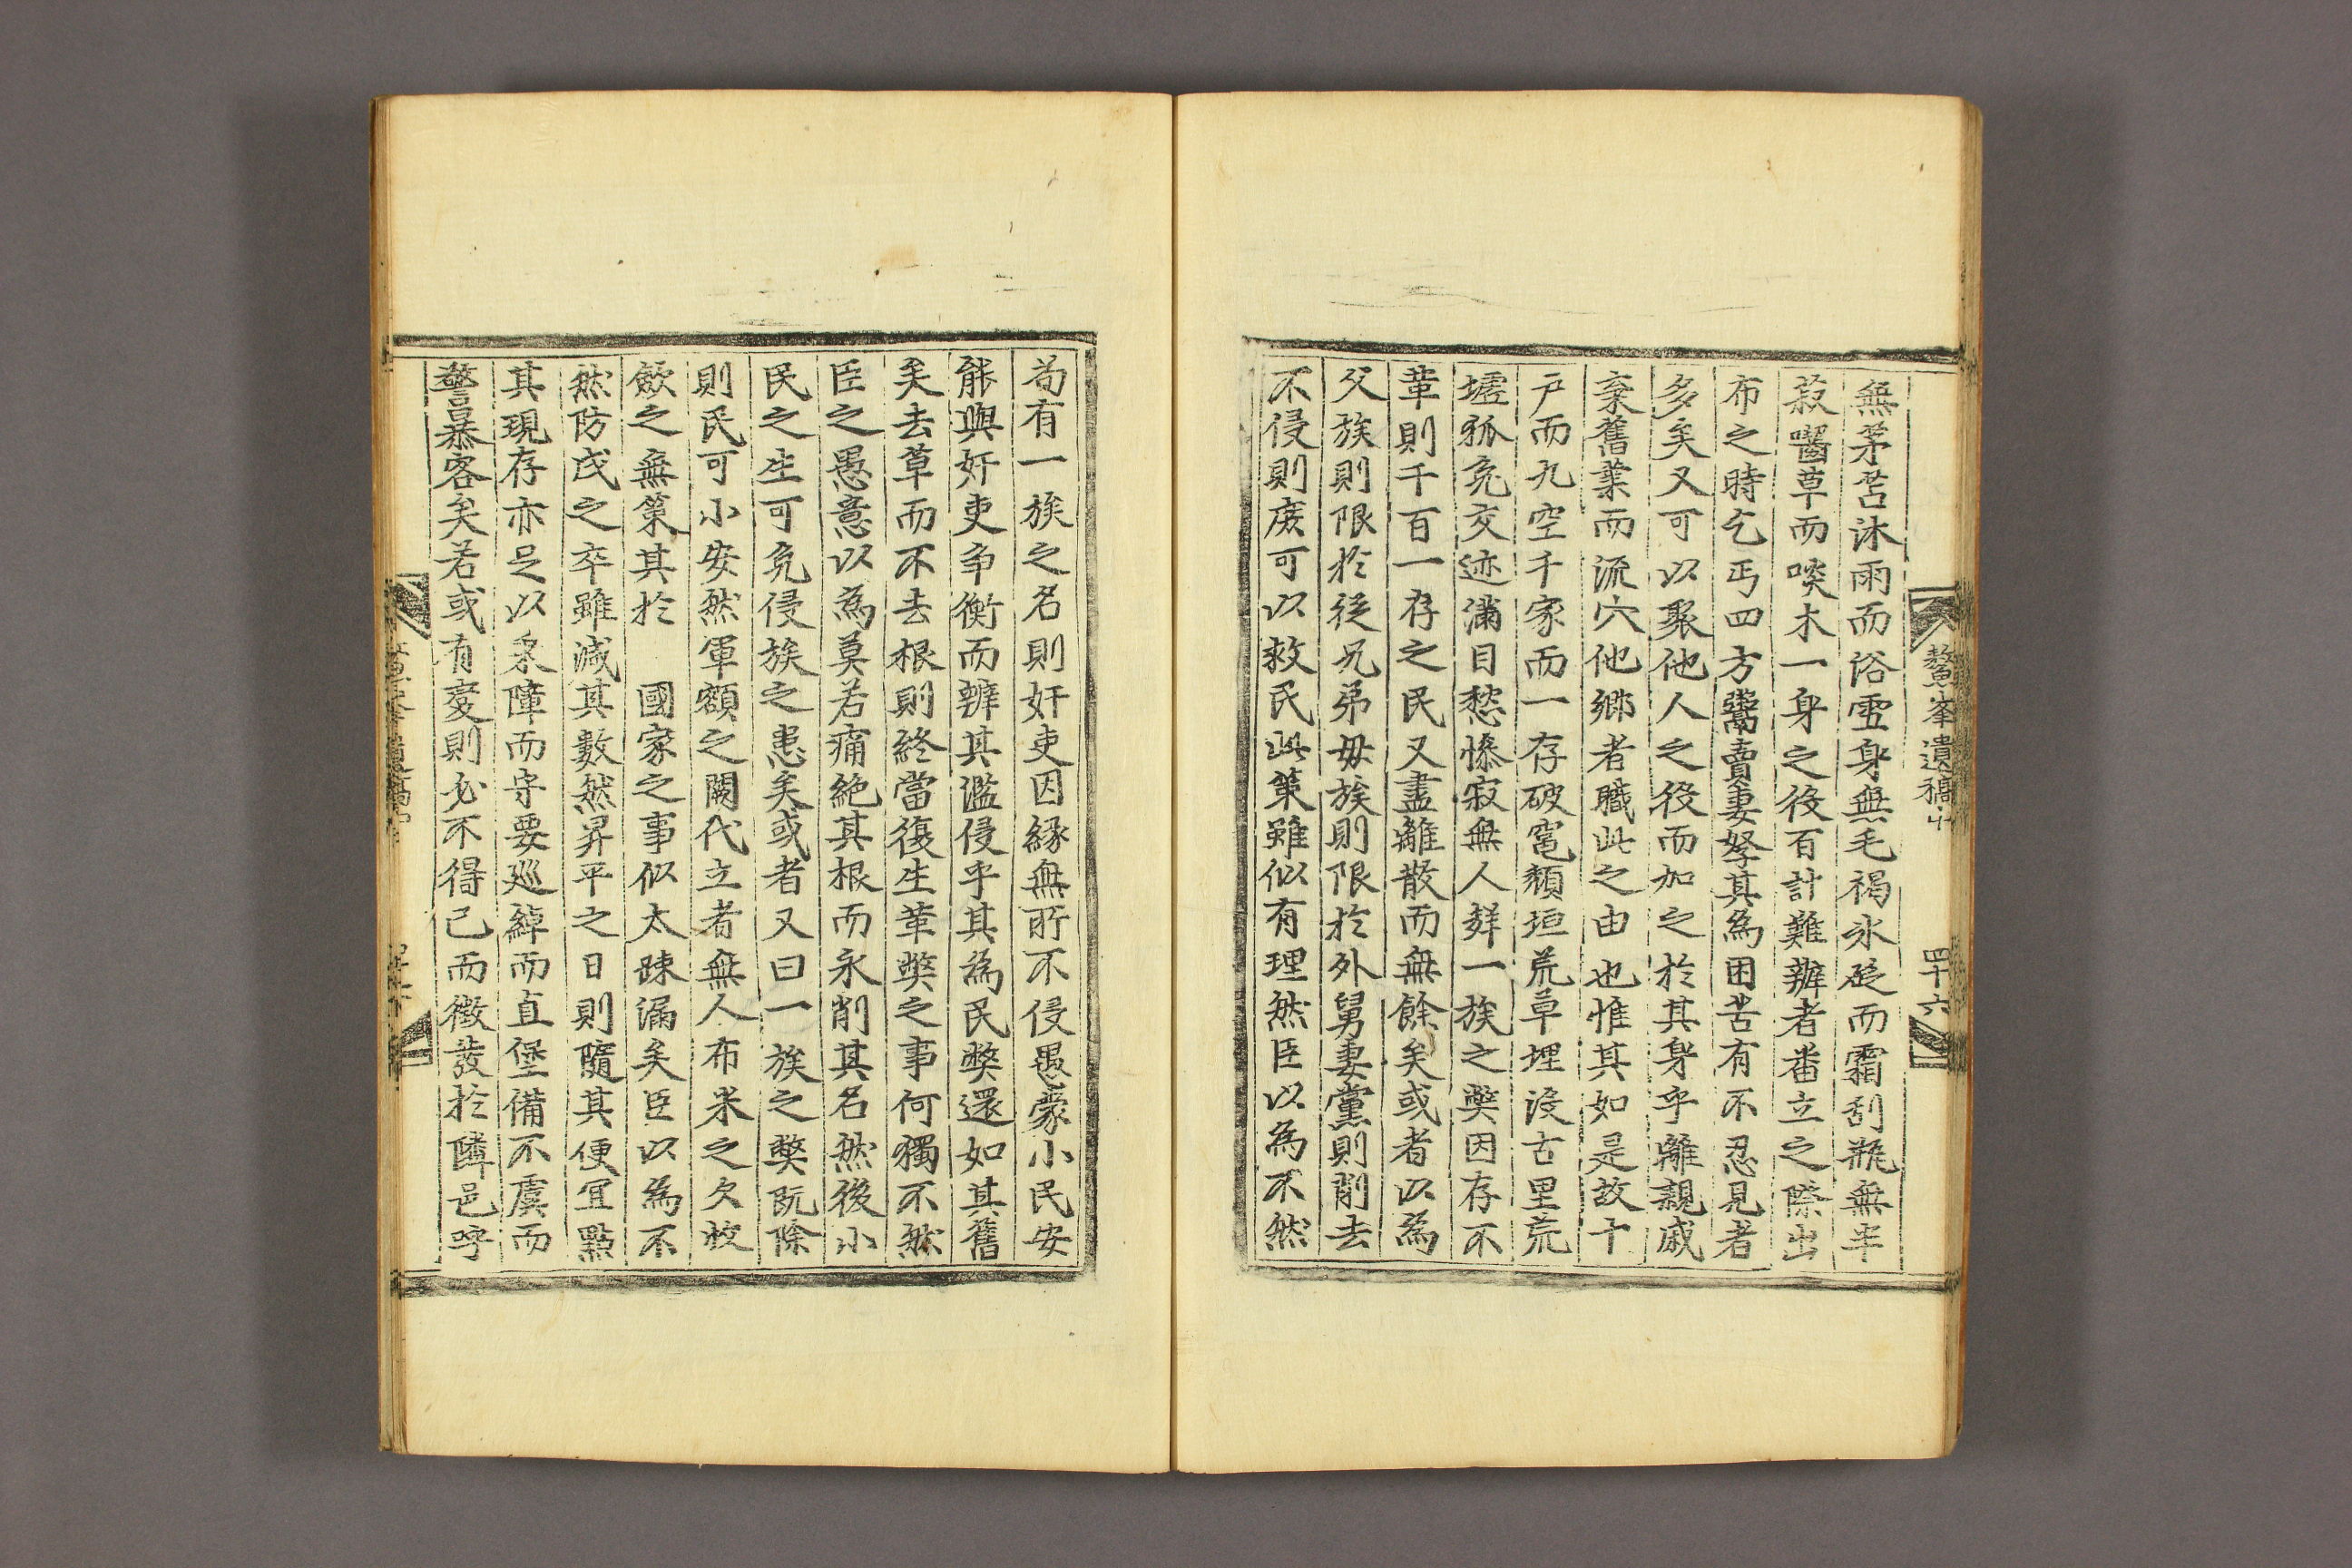 無茅苫沐雨而浴雪身無毛褐氷砭而霜刮甁無半
菽囓草而啖木一身之役百計難辦者畨立之際出
布之時乞丐四方鬻賣妻孥其爲困苦有不忍見者
多矣又可以聚他人之役而加之於其身乎離親戚
棄舊業而流穴他鄕者職此之由也惟其如是故十
戶而九空千家而一存破竈頹垣荒草埋沒古里荒
墟狐兎交迹滿目愁慘寂無人髥一族之弊因存不
革則千百一存之民又盡離散而無餘矣或者以爲
父族則限於從兄弟母族則限於外舅妻黨則削去
不侵則庶可以救民此策雖似有理然臣以爲不然
鰲峯遺稿 四十六
苟有一族之名則奸吏因緣無所不侵愚蒙小民安
能與奸吏爭衡而辨其濫侵乎其爲民弊還如其舊
矣去草而不去根則終當復生革弊之事何獨不然
臣之愚意以爲莫若痛絶其根而永削其名然後小
民之生可免侵族之患矣或者又曰一族之弊旣除
則民可小安然軍額之闕代立者無人布米之欠收
斂之無策其於 國家之事似太疎漏矣臣以爲不
然防戍之卒雖减其數然昇平之日則隨其便宜點
其現存亦足以乘障而守要廵綽而直堡備不虞而
警暴客矣若或有變則必不得已而徵發於隣邑呼